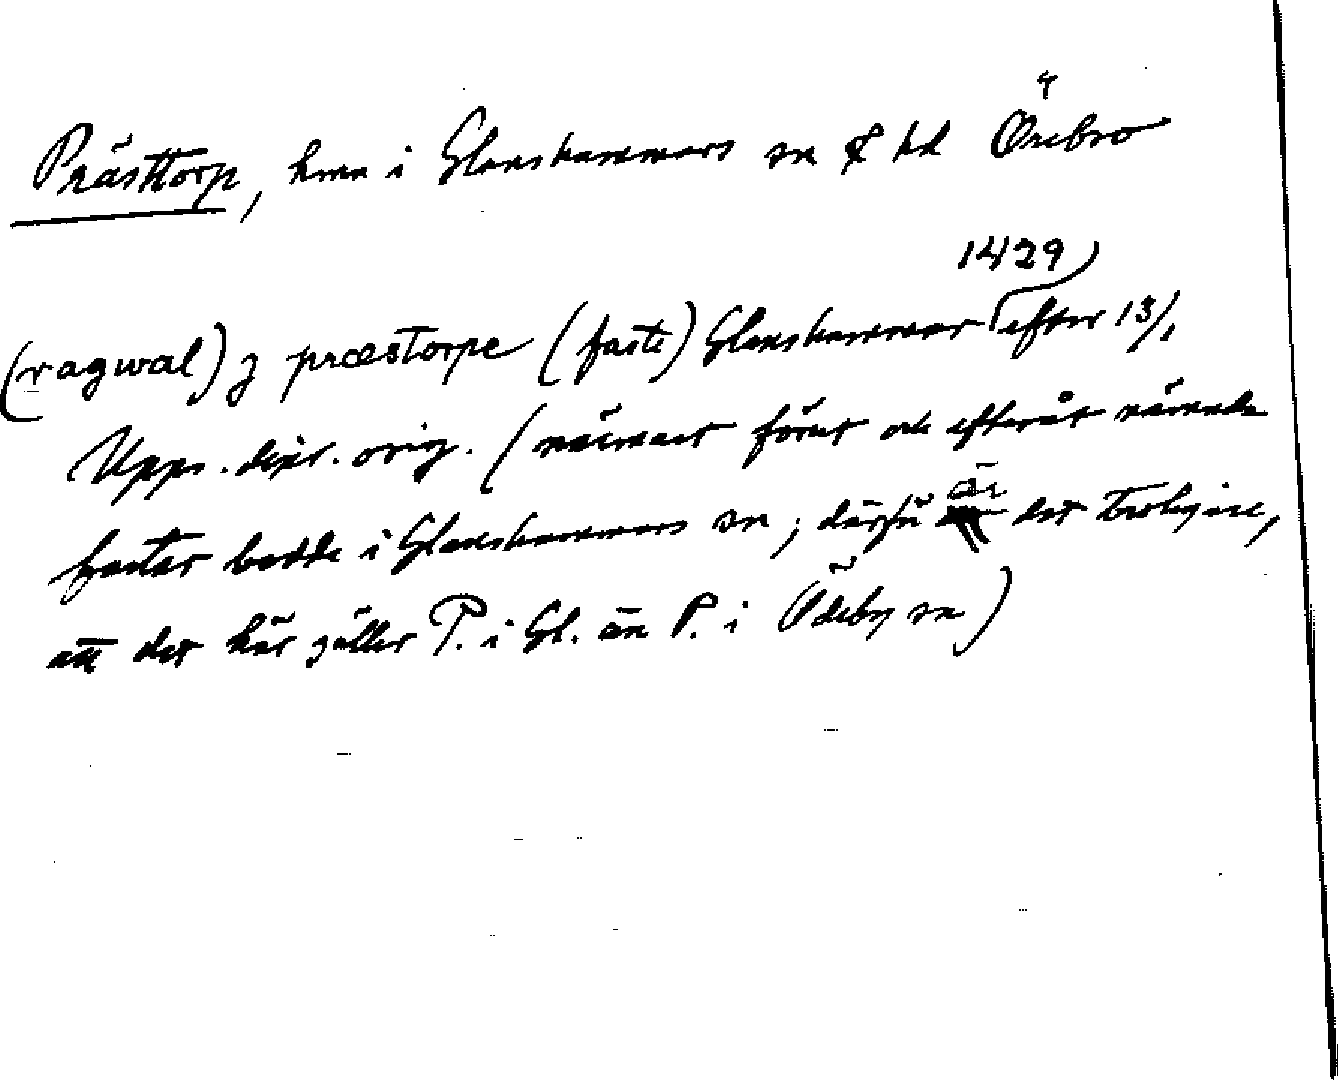 Prästtorp, hmn i Glanshammars sn & hd Örebro
(ragwal) j præstorpe (faste) Glanshammar 1429 efter 13/1
Upps. dipl. orig. (närmast förut och efteråt nämnda
fastar bodde i Glanshammars sn; därför är det troligare,
att det här gäller P. i Gl. än P. i Ödeby sn)